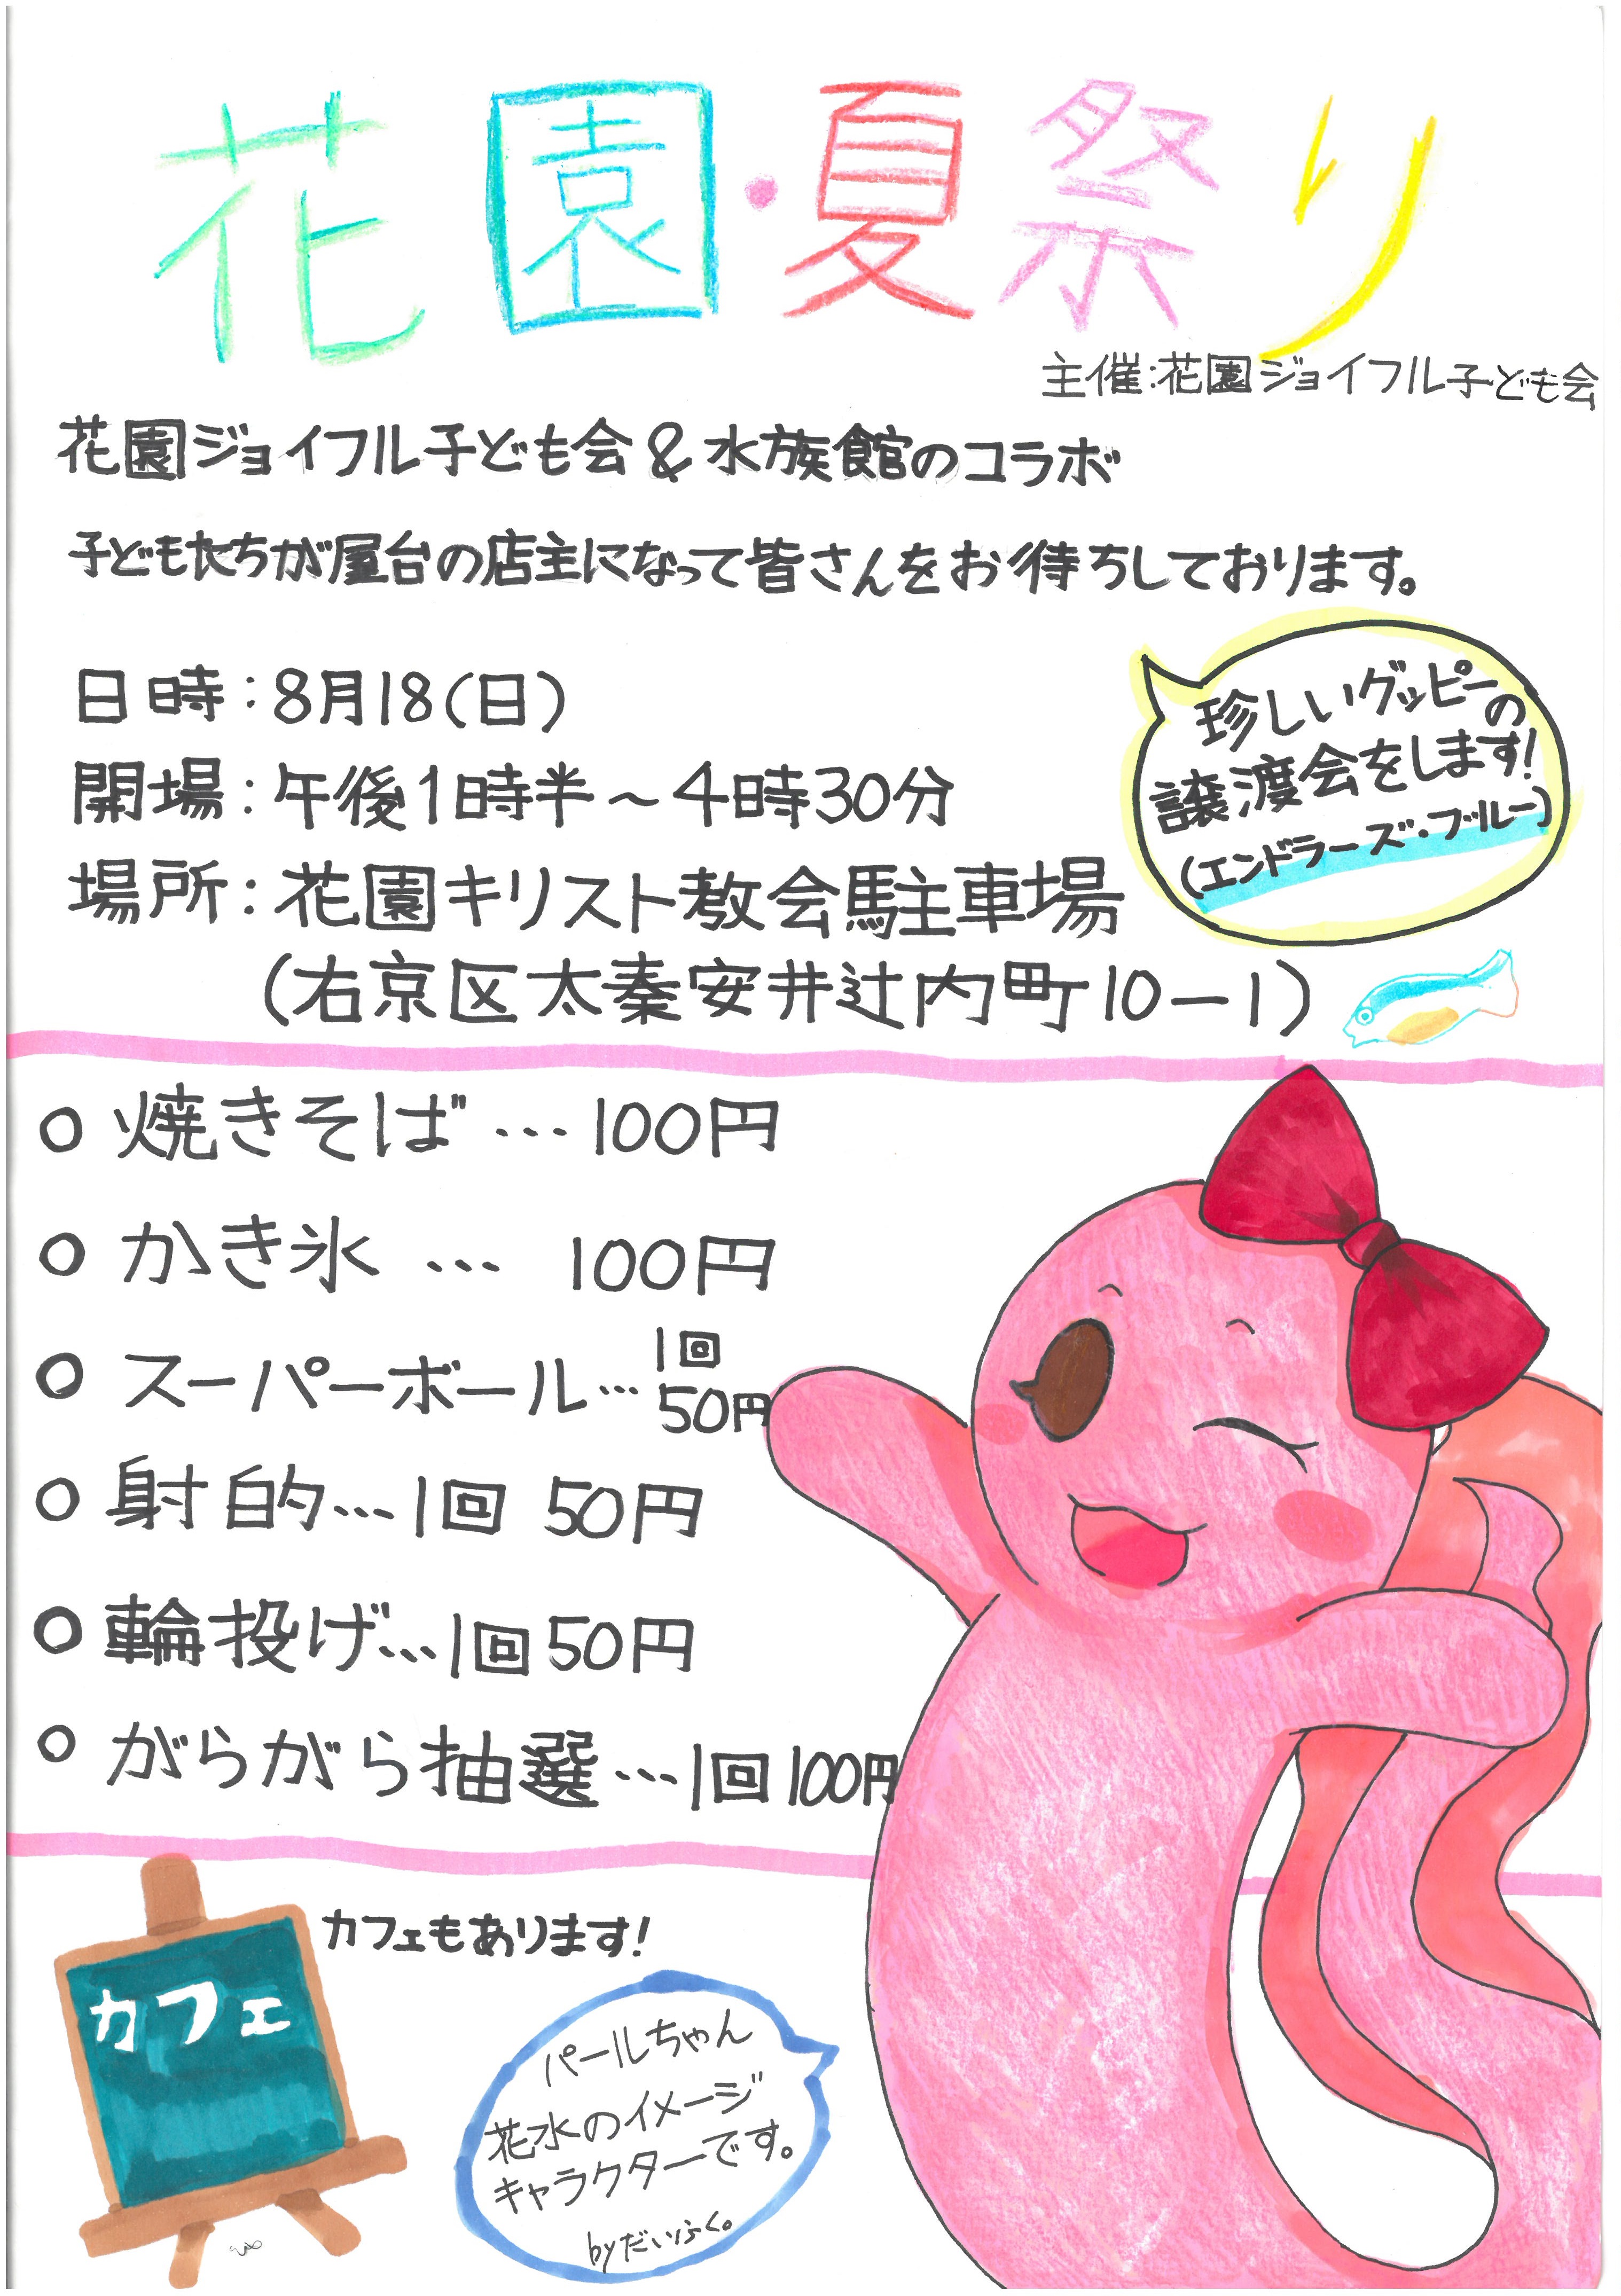 花園・夏祭り
主催:花園ジョイフル子ども会
花園ジョイフル子ども会&水族館のコラボ
子どもたちが屋台の店主になって皆さんをお待ちしております。
日時:8月18(日)
開場:午後1時半~4時30分
場所:花園キリスト教会駐車場
(右京区太秦安井辻内町10-1)
珍しいグッピーの
譲渡会をします!
(エンドラーズ・ブルー)
○焼きそば…100円
○かき氷…100円
○スーパーボール…1回
50円
○射的…1回 50円
○輪投げ…1回50円
○がらがら抽選…1回100円
カフェもあります!
カフェ
パールちゃん
花水のイメージ
キャラクターです。
byだいふく。